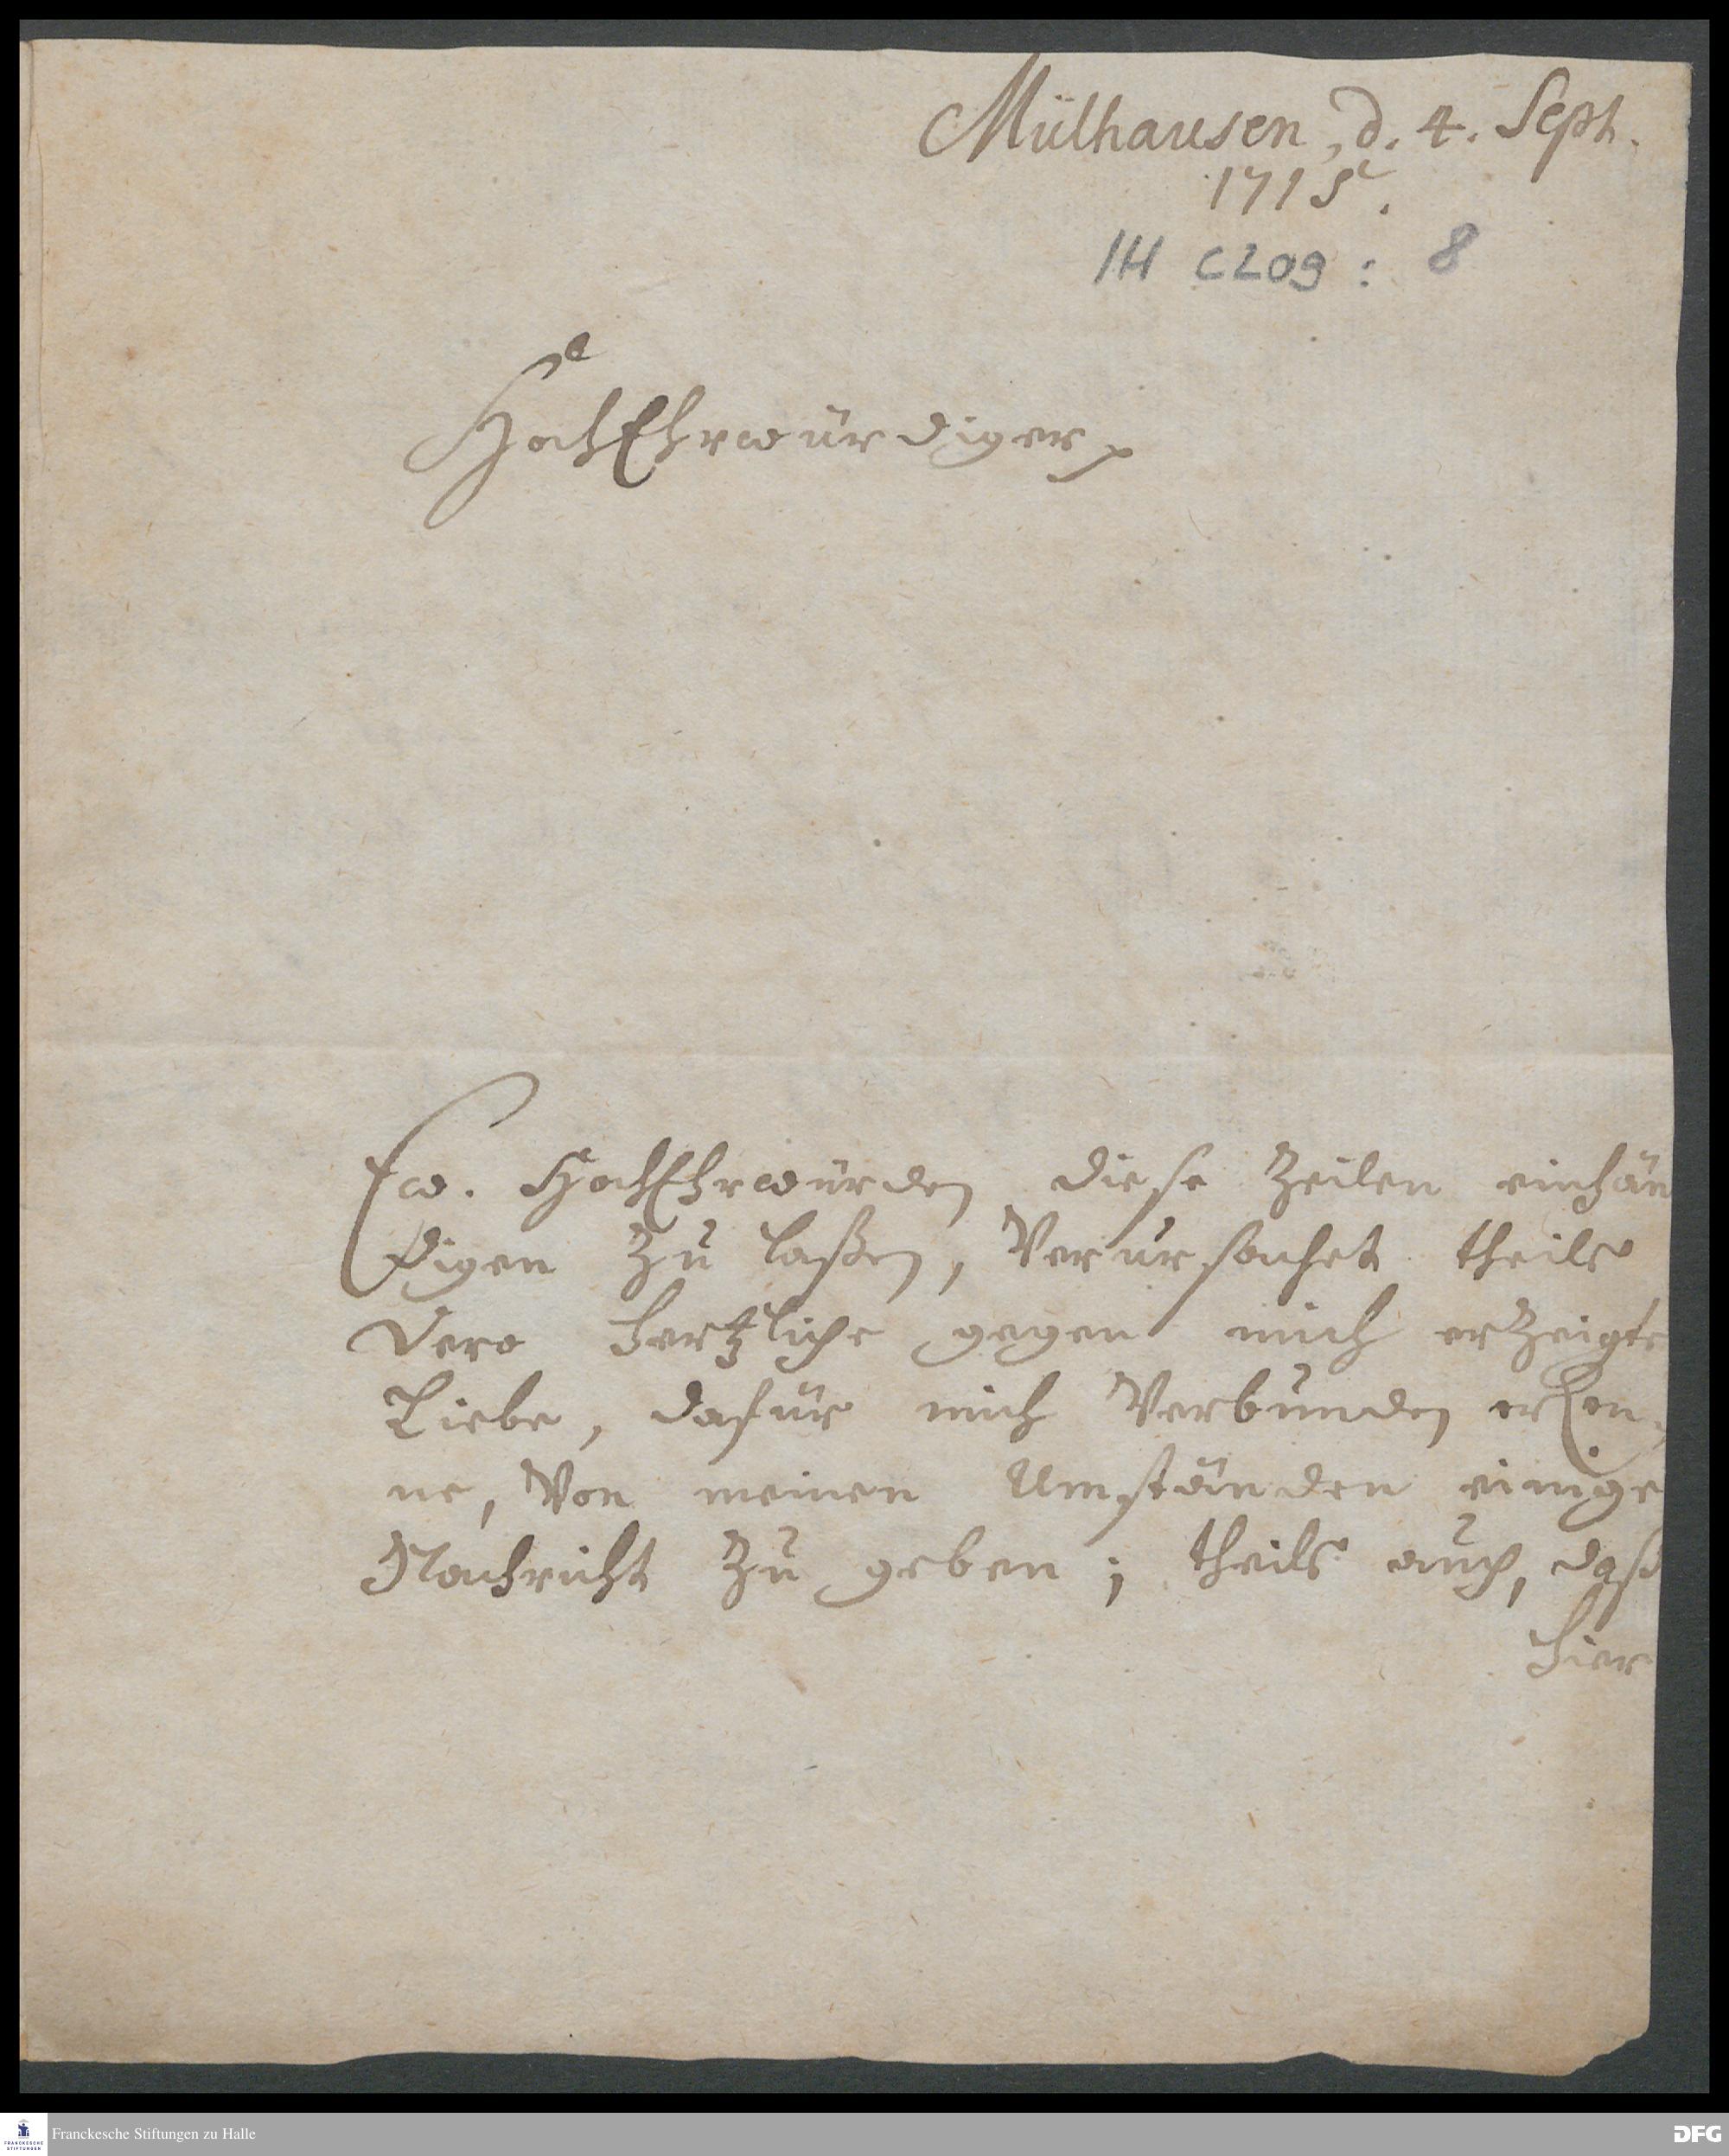 Mülhausen, d. 4. Sept.
1715.
1H C209 : 8
HochEhrwürdiger
Ew. HochEhrwürden diese Zeilen einhän
digen zu laßen, Verursachet theils
dero hertzliche gegen mich erzeigte
Liebe, dafür mich Verbunden erken-
ne, Von meinen Umständen einige
Nachricht zu geben; theils auch, daß
hier
Franckesche Stiftungen zu Halle
FRANCKESCHE STIFTUNGEN
DFG